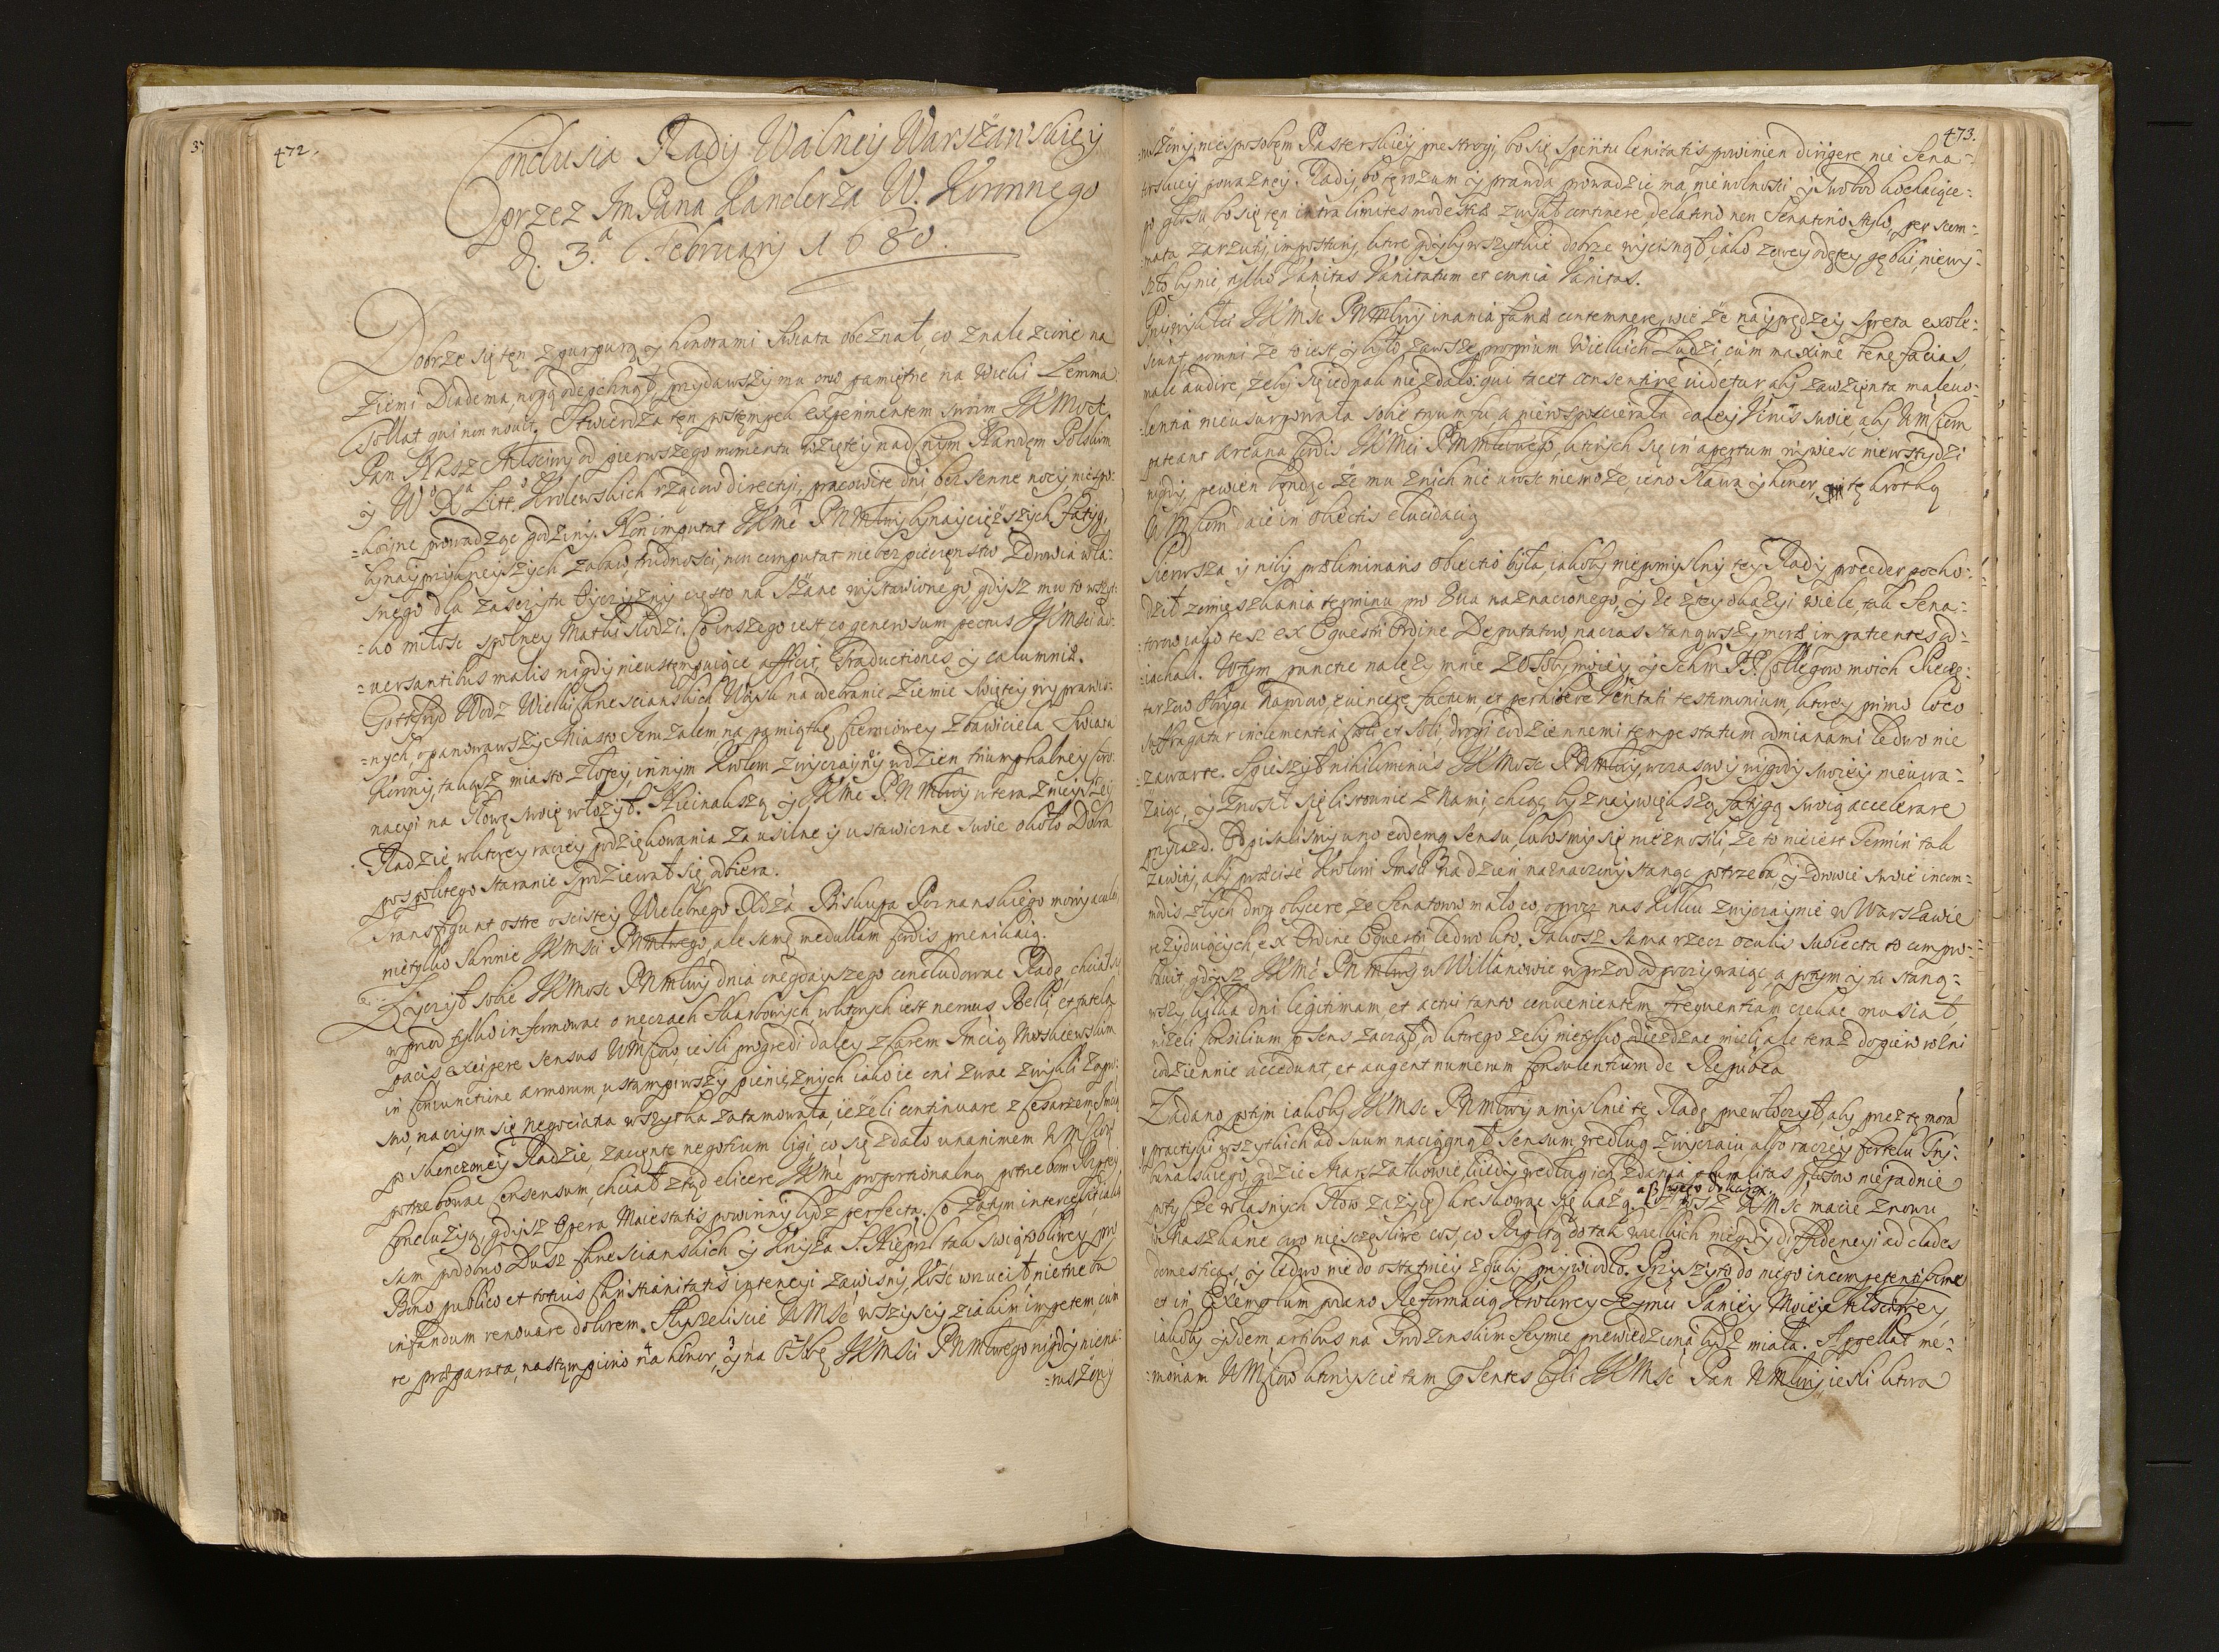 472.
Conclusia Rady Walney Warszawskiey
przez Jm Pana Kanclerza W. Koronnego
d. 3.a Februarij 1680.
Dobrze się ten z purpurą y honorami Swiata obeznał, co znalezione na
Ziemi Diadema, nogą odepchnął, przydawszy mu owo pamiętne na wieki Lemma
Tollat qui non novit. Stwierdza ten postępek experimentem swoim JKMość
Pan Nasz Młsciwy od pierwszego momentu wziętey nad Narodem Polskim
y W. X. Litt. Krolewskich rządow directij, pracowite dni, bezsenne nocy niespo-
=koyne prowadząc godziny. Non imputat JKMć PNMłwy by naycięższych fatyg,
by nayprzykrzeyszych zabaw, trudności, non computat niebezpieczenstwo Zdrowia wła-
snego dla zaszczytu Oyczyzny często na Szanc wystawionego, gdysz mu to wszyt-
=ko miłosc spolney Matki słodzi. Co inszego iest, co generosum pectus JKMsci ad-
=versantibus malis nigdy nieustępuiące afficit, Traductiones y calumniæ.
Gottfryd Wodz Wielki chrzescianskich Woysk na odebranie Ziemie Swiętey wyprawio-
=nych, opanowawszy Miasto Jeruzalem, na pamiątkę cierniowey Zbawiciela Swiata
Korony, takąsz miasto złotey, innym Krolom zwyczayny w dzien triumphalney
na Głowę swoię włożył. Nieinakszą y JKMć PNMłwy w teraznieyszey
Radzie, w ktorey raczey podziękowania za usilne y ustawiczne swoie około Dobra
pospolitego staranie spodziewał się, odbiera.
Transfigunt ostre osciste Wielebnego Xdza Biskupa Poznanskiego mowy aculei,
nietylko skronie JKMsci PNMłwego, ale samę medullam Cordis przenikaią.
Zyczył sobie JKMość PNMłwy dnia onegdayszego concludować Radę, chciał
wprzod tylko informować o rzeczach Skarbowych, w ktorych iest nervus Belli, et tutela
pacis, excipere sensus WMsciow, iesli progredi daley z Carem Jmcią Moskiewskim
in coniunctione armorum, ustąpiwszy pieniężnych iakoie oni zwać zwykli
na czym się negociatia wszytka zatamowała, ieżeli continuare z Cesarzem Jmcią
po skonczoney Radzie, zaczęte negotium ligi, co się zdało unanimem WMsciow
potrzebować Consensum, chciał ztąd elicere JKMć proportionalną potrzebom Rzptey
Concluzyą, gdysz Opera Maiestatis powinny bydz perfecta. Co zatym
sam podobno Dusz chrzescianskich y Xiąża S. Nieprzł tak swiątobliwey pro
Bono publico et totius Christianitatis intencyi zawisny, kość wrzucił nietrzeba
infandum renovare dolorem. Słyszeliscie WMsć wszyscy z iakim impetem cum
re præparata, nastąpiono na honor, y na Osobę JKMsci PNMłwego nigdy niena-
=ruszony
473.
=ruszony, niesposobem Pasterskiey przestrogi, bo się Spiritu lenitatis powinien dirigere, nie Sena-
torskiey poważney Rady, bo tę rozum y prawda prowadzić ma, nie wolności y Swobod kochaiące-
go głosu bo się ten intra limites modestiæ zwykł continere, delatorio non Senatorio stylo, per scom-
mata, zarzuty, impostury, ktore gdyby wszytkie dobrze wycisnął iako z owey odętey gębki, niewy-
szło by nic, tylko Vanitas Vanitatum et omnia Vanitas.
Przywykłeś JKMsc PNMłwy inania famæ contemnere, wie że nayprędzey spreta exole-
scunt, pomni że to iest y było zawsze proprium Wielkich Ludzi, cum maxime bene facias,
male audire, żeby się iednak nie zdało: qui tacet consentire videtur aby zawzięta malevo-
lentia nieusurpowała sobie tryumfu, a nierosposcierała daley Vires swoie, aby WMsciom
pateant arcana Cordis JKMci PNMłwego, ktorych się in apertum wywiesc niewstydzi
nigdy, pewien będąc że mu z nich nic urosc niemoże, ieno Sława y honor, tę krotką
WMsciom daie in obiectis elucidacią
Pierwsza y niby præliminaris obiectio była, iakoby niepomyslny tey Rady proceder pocho-
dził z omieszkania terminu pro 8va naznaczonego, y że z tey okazyi wiele, tak Sena-
torow iako tesz ex Equestri Ordine Deputatow, na czas stanąwszy moræ impatientes od-
iachali. W tym puncie należy mnie z osoby moiey y Ichm PP. Collegow moich Pieczę-
tarzow Oboyga Narodow, evincere factum et perhibere Veritati testimonium, ktorey primo loco
suffragatur inclementia cœli et soli, drogi codziennemi tempestatum odmianami ledwo nie
zawarte. Spieszył nihilominus JKMosc PNMłwy, wczasowy wygody swoiey nieuwa-
żaiąc, y znosił się listownie z Nami, chcąc by z naywiększą fatygą swoią accelerare
przyiazd. Odpisalismy uno eodemq sensu, lubosmy się nieznosili, że to nieiest Termin tak
zawity, aby præcise Krolowi Jmsci na dzien naznaczony stanąc potrzeba, y zdrowie swoie incom-
modis złych drog obiicere, że Senatorow mało co, oprocz nas kilku zwyczaynie w Warszawie
rezyduiących, ex Ordine Equestri ledwo kto. Jakosz sama rzecz oculis subiecta to compro-
bavit, gdysz JKMć PNMłwy w Willanowie wprzod odpoczywaiąc, a potym y tu stanąw-
wszy kilka dni legitimam, et actui tanto convenientem frequentiam czekać musiał,
niżeli Consilium præsens zaczął, od ktorego żeby nietylko odieżdżac mieli, ale teraz dopiero rożni
codziennie accedunt, et augent numerum Consulentium de Republica
Zadano potym iakoby JKMsc PNMłwy umyslnie tę Radę przewłoczył, aby przez tę moram
y practyki wszytkich ad suum naciągnął sensum, według zwyczaiu albo raczey fortelu Try-
bunalskiego, gdzie Marszałkowie, kiedy według ich zdania pluralitas głosow niepadnie
poty (że własnych słow zażyię) kreskować się każą, aß swego dokażą. Otosz WMsc macie znowu
wskrzeszone owo niesczęsliwe coś, co Rzpltą do tak wielkich niegdy diffidencyi ad clades
domesticas, y ledwo nie do ostatniey zguby przywiodło. Przyszyto do niego incompetentissime
et in Exemplum podano Reformacią Krolowey Jeymci Paniey Moiey Młsciwey,
iakoby iisdem artibus na Grodzienskim Seymie przewiedziona bydz miała. Appellat me-
=moriam WMsciow ktorzyscie tam præsentes byli JKMsć Pan NMłwy iesli ktora